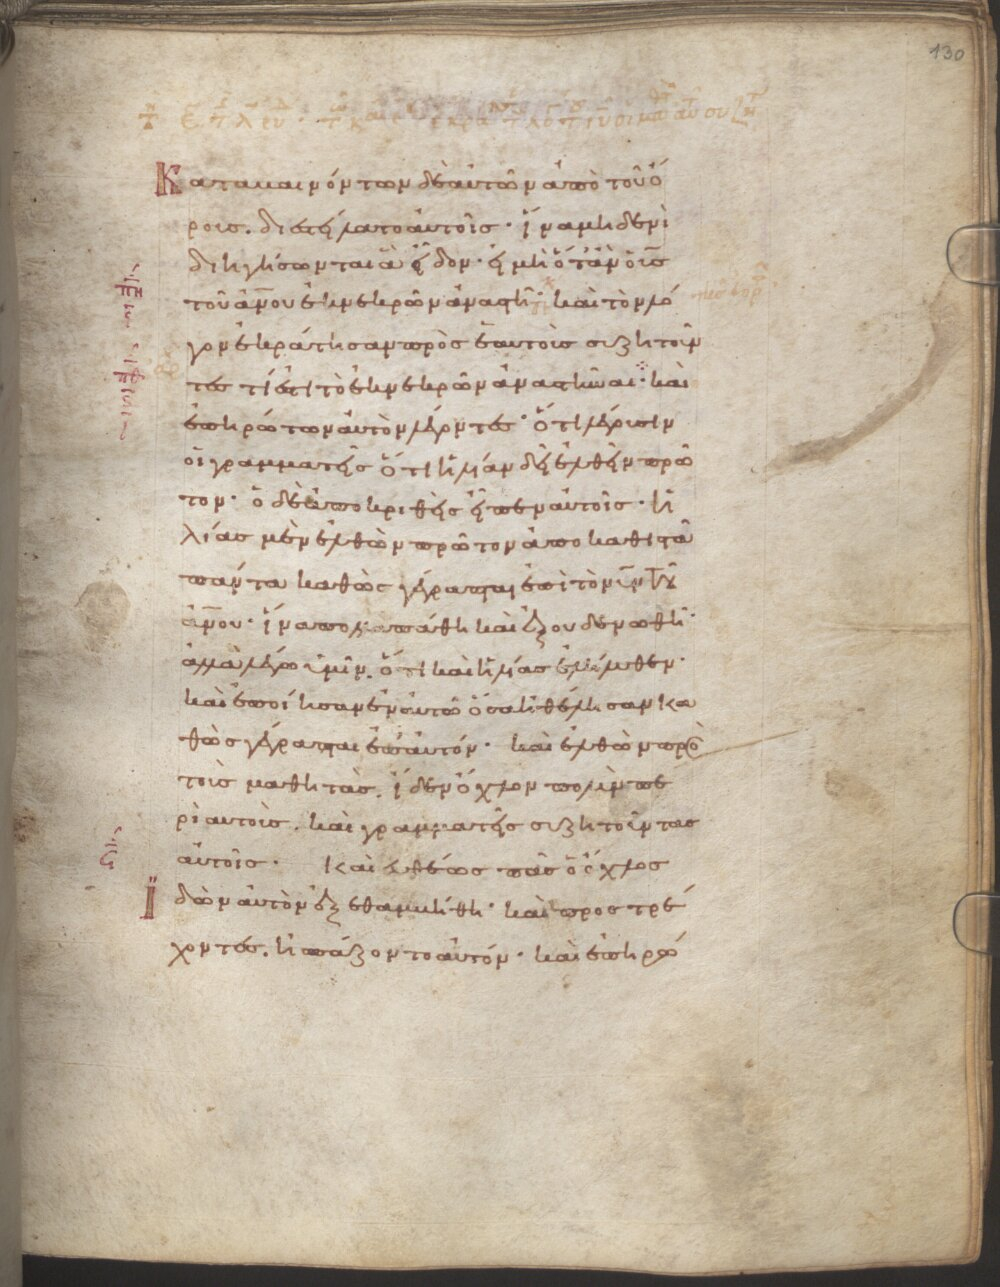 130
Καταβαινόντων δὲ αὐτῶν ἀπὸ τοῦ ὄ
ρους. διεστείλατο αὐτοῖς· ἵνα μηδενὶ
διηγήσωνται ἃ εἶδον· εἰ μὴ ὅταν ὁ υ̅ς̅
τοῦ α̅ν̅ου ἐκ νεκρῶν ἀναστῆ· καὶ τὸν λό
γον ἐκράτησαν πρὸς ἑαυτοὺς συζητοῦν
τες τί ἐστι τὸ ἐκ νεκρῶν ἀναστῆναι· καὶ
ἐπηρώτων αὐτὸν λέγοντες· ὅτι λέγουσιν
οἱ γραμματεῖς ὅτι ἡλίαν δεῖ ἐλθεῖν πρῶ
τον· ὁ δὲ ἀποκριθεὶς εἶπεν αὐτοῖς· ἡ
λίας μὲν ἐλθὼν πρῶτον ἀποκαθιστᾶ
πάντα καθὼς γέγραπται ἐπὶ τὸν υ̅ν̅ τοῦ
α̅ν̅ου· ἵνα πολλὰ πάθη καὶ ἐξουδενωθῆ·
ἀλλὰ λέγω ὑμῖν. ὅτι καὶ ἡλίας ἐλήλυθεν·
καὶ ἐποίησαν ἐν αὐτῶ ὅσα ἠθέλησαν κα
θὼς γέγραπται ἐπ' αὐτόν· καὶ ἐλθὼν πρὸ
τοὺς μαθητὰς. ἴδεν ὄχλον πολὺν πε
ρὶ αυτοὺς. καὶ γραμματεῖς συζητοῦντας
αὐτοῖς· Καὶ εὐθέως πᾶς ὁ ὄχλος
ἰδὼν αὐτὸν ἐξεθαμβήθη· καὶ προστρέ
χοντες. ἠσπάζοντο αὐτόν· καὶ ἐπηρώ